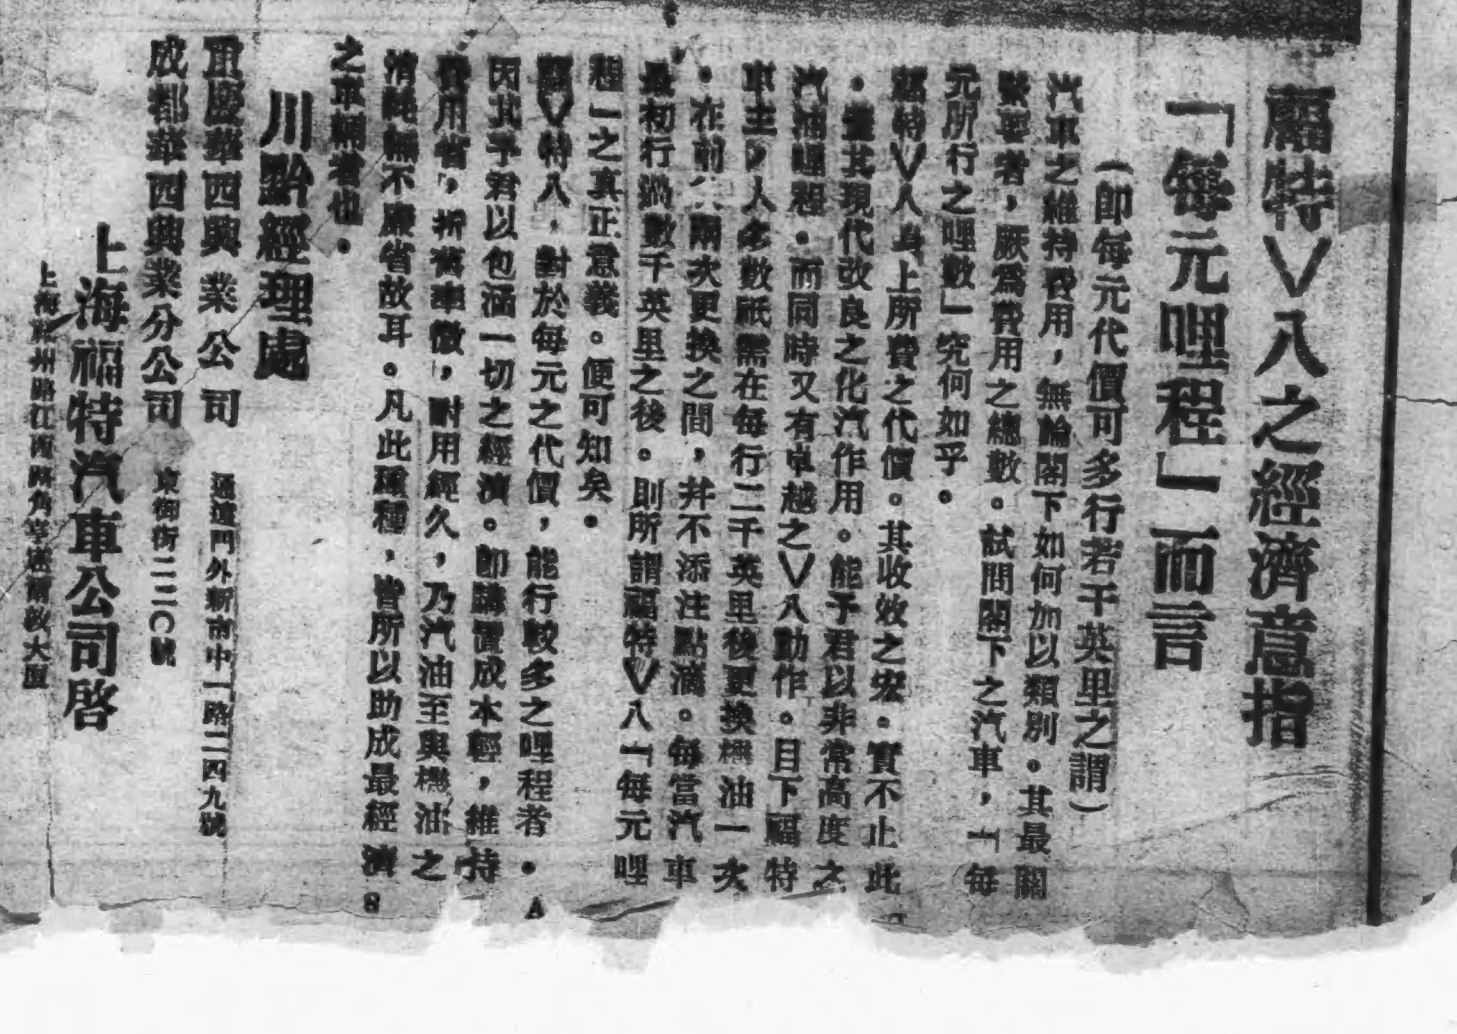 福特V八之經濟意指
「每元哩程」而言
(卽每元代價可多行若干英里之謂)
汽車之維持費用，無論閣下如何加以類別。其最關
緊要者，厥爲費用之總數。試問閣下之汽車，「每
元所行之哩數」究何如乎。
福特V八身上所費之代價。其收效之宏。實不止此
。蓋其現代改良之化汽作用。能予君以非常高度之
汽油哩程。而同時又有卓越之V八動作。目下福特
車主，大多數祇需在每行二千英里後更換機油一次
。在前後兩次更換之間，幷不添注點滴。每當汽車
最初行過數千英里之後。則所謂福特V八「每元哩
程」之真正意義。便可知矣。
福特V八，對於每元之代價，能行較多之哩程者。
因其予君以包涵一切之經濟。卽購置成本輕，維持
費用省，折舊率微，耐用經久，乃汽油至與機油之
消耗無不廉省故耳。凡此種種，皆所以助成最經濟
之車輛者也。
川黔經理處
重慶華西興業公司 通遠門外新市中一路二四九號
成都華西興業分公司 東御街二二〇號
上海福特汽車公司啓
上海 州路江西路角 大廈